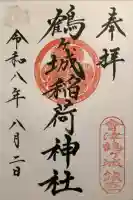 奉拝
鶴ヶ城稲荷神社
令和八年八月二日